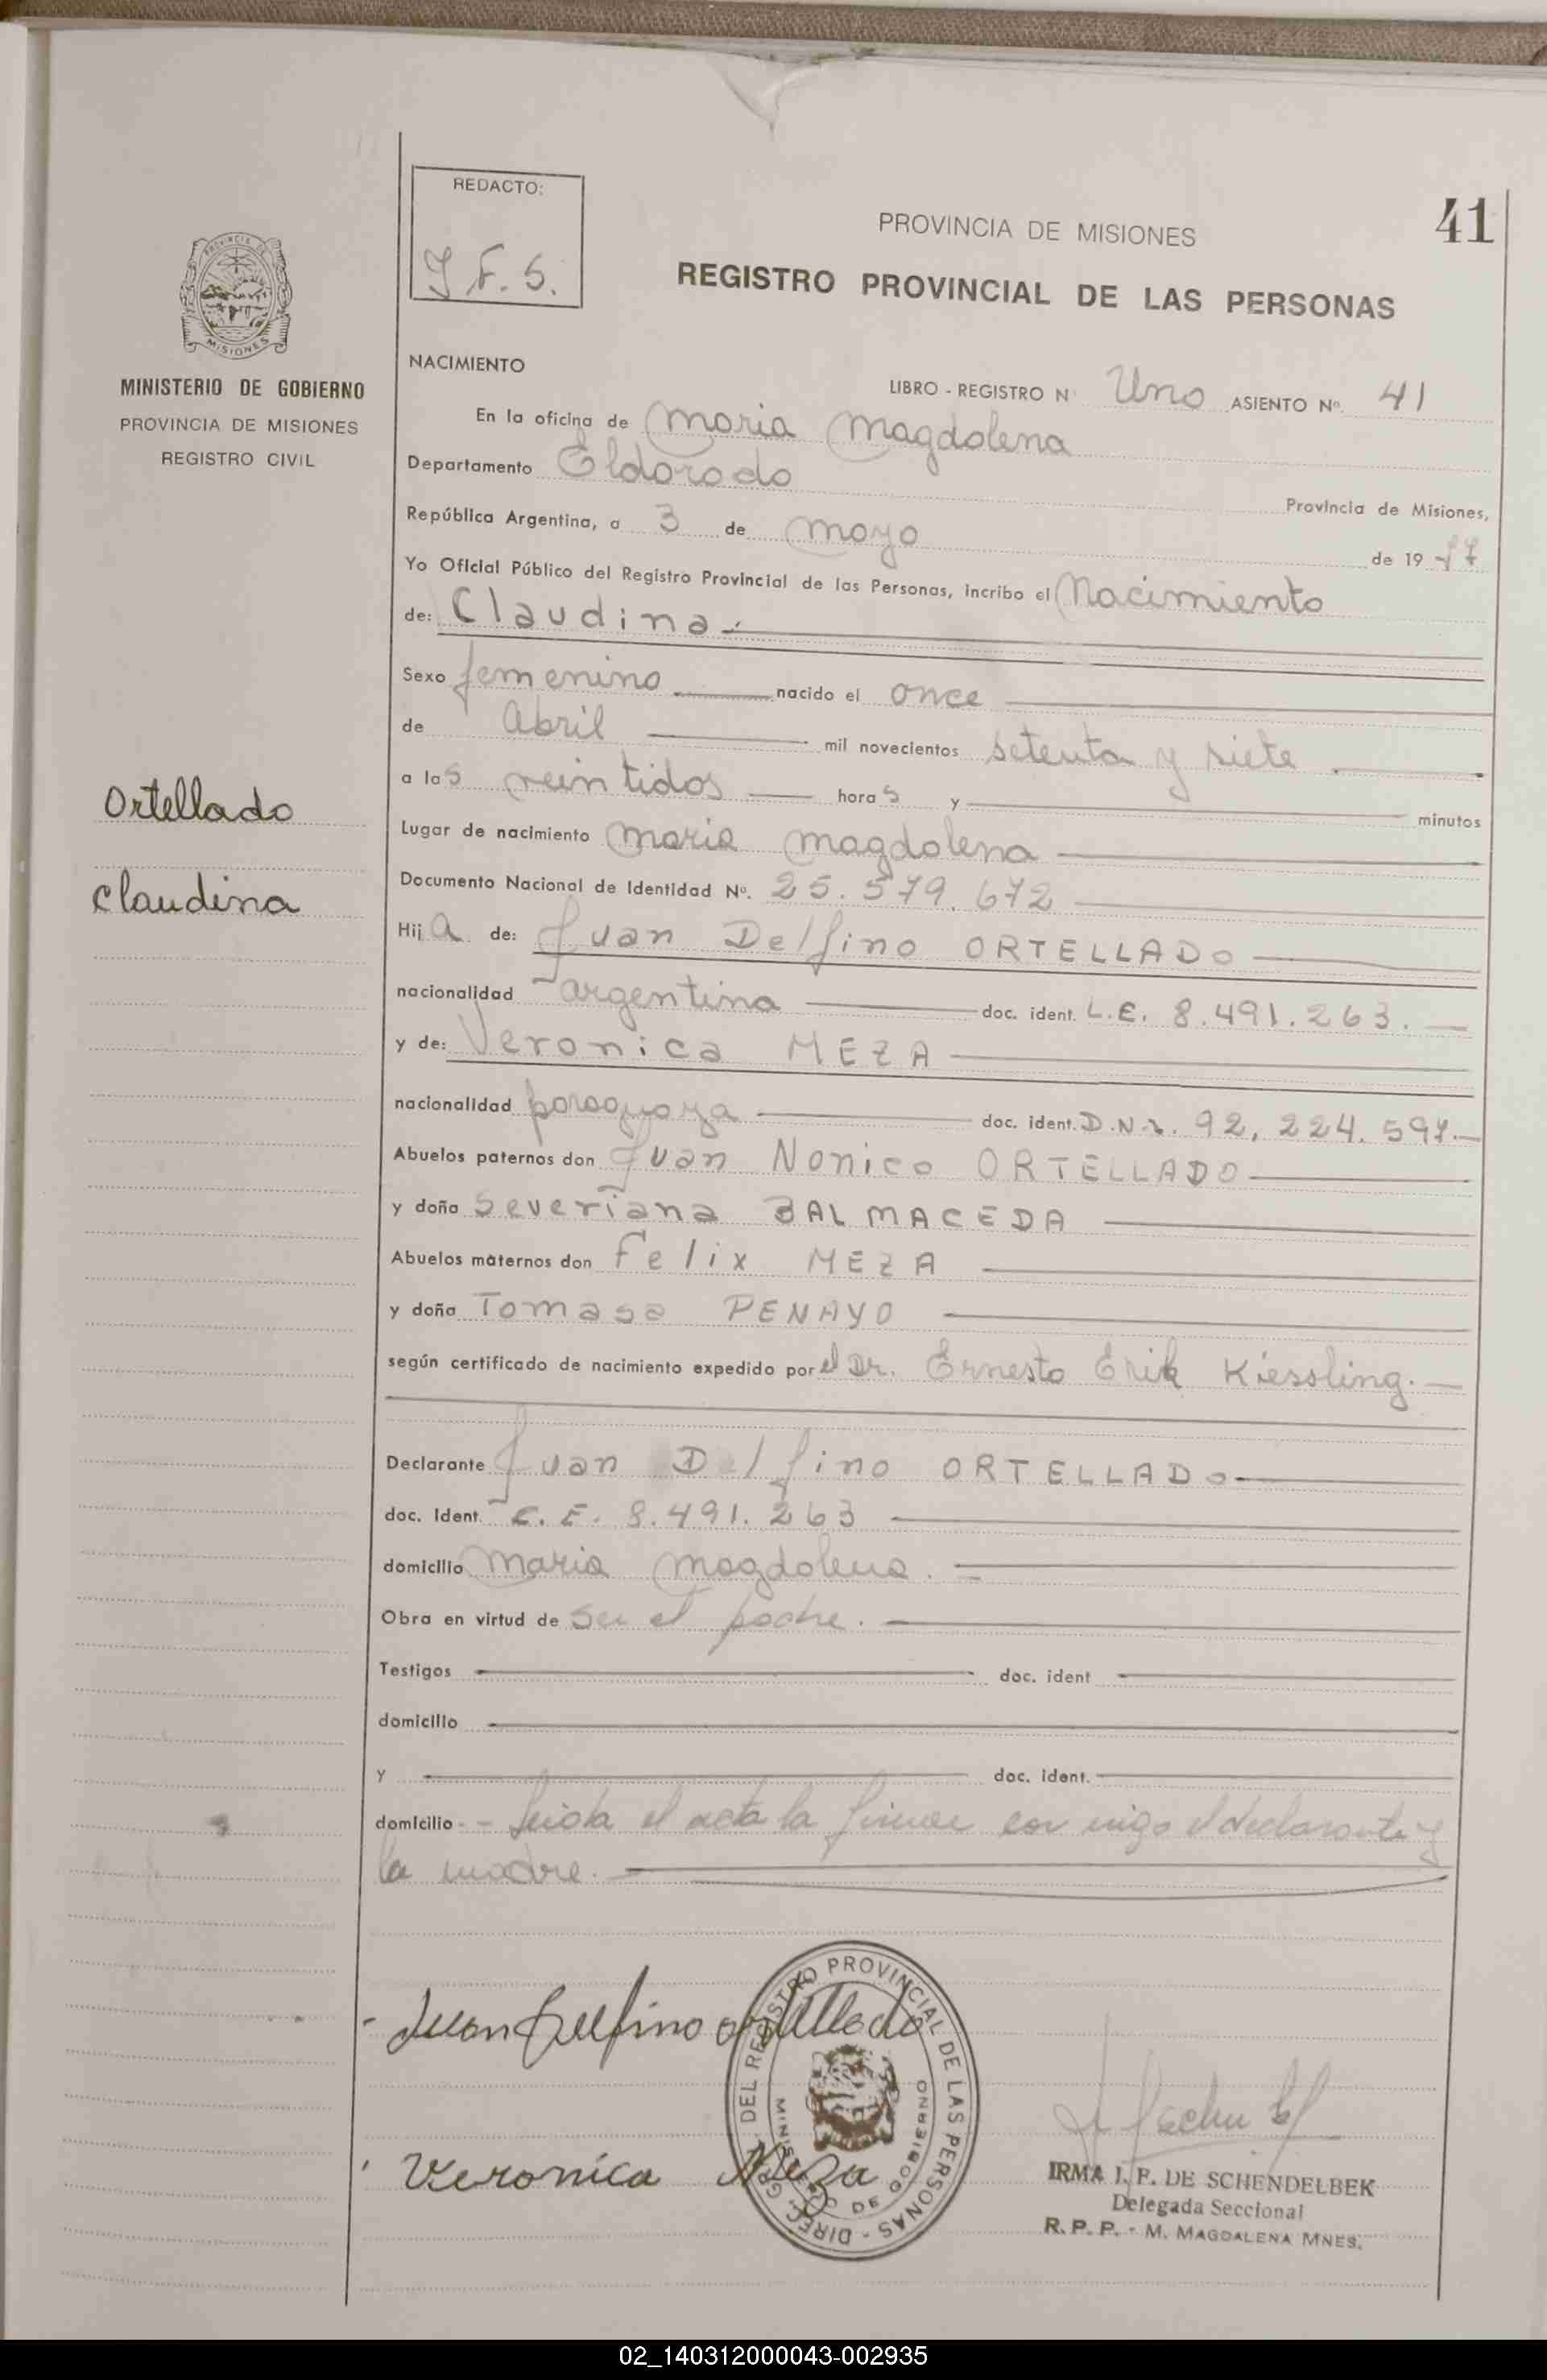 REDACTO:
PROVINCIA DE MISIONES
41
REGISTRO PROVINCIAL DE LAS PERSONAS
MISIONES
MINISTERIO DE GOBIERNO
PROVINCIA DE MISIONES
REGISTRO CIVIL
NACIMIENTO
LIBRO - REGISTRO Nº Uno ASIENTO Nº. 41
En la oficina de Maria Magdalena
Departamento Eldorado Provincia de Misiones,
República Argentina, a 3 de mayo de 1977
Yo Oficial Público del Registro Provincial de las Personas, incribo el Nacimiento
de: Claudina.-
Sexo femenino nacido el once
de Abril mil novecientos setenta y siete
a las veintidos horas y minutos
Ortellado
Lugar de nacimiento Maria Magdalena
Claudina
Documento Nacional de Identidad Nº. 25.579.672
Hija de: Juan Delfino ORTELLADO
nacionalidad argentina doc. ident. L.E. 8.491.263.
y de: Veronica MEZA
nacionalidad paraguaya doc. ident. D.N.I. 92.224.597.-
Abuelos paternos don Juan Nonico ORTELLADO
y doña Severiana BALMACEDA
Abuelos maternos don Felix MEZA
y doña Tomasa PENAYO
según certificado de nacimiento expedido por el Dr. Ernesto Erik Kiessling.-
Declarante Juan Delfino ORTELLADO
doc. Ident. L.E. 8.491.263
domicilio Maria Magdalena.
Obra en virtud de ser el padre.
Testigos doc. ident
domicilio
y doc. ident.
domicilio - Leida el acta la firman con migo el declarante y
la madre.
Juan Delfino ortellado
DIREC. GRAL. DEL REGISTRO PROVINCIAL DE LAS PERSONAS -
MINISTERIO DE GOBIERNO
Veronica Meza
IRMA I. F. DE SCHENDELBEK
Delegada Seccional
R. P. P. - M. MAGDALENA MNES.
02_140312000043-002935